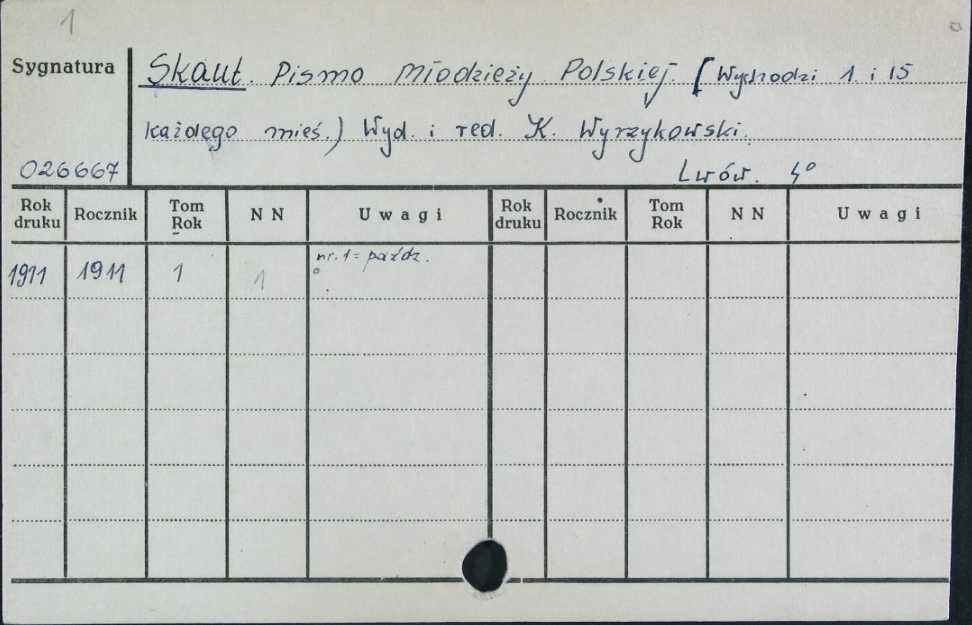 1
Sygnatura
Skaut. Pismo Młodzieży Polskiej. [Wychodzi 1 i 15
każdego mieś.) Wyd. i red. K. Wyrzykowski.
026667
Lwów. 4°
Rok druku Rocznik Tom Rok N N Uwagi Rok druku Rocznik Tom Rok N N Uwagi
1911 1911 1 1 nr. 1 = paźdz.